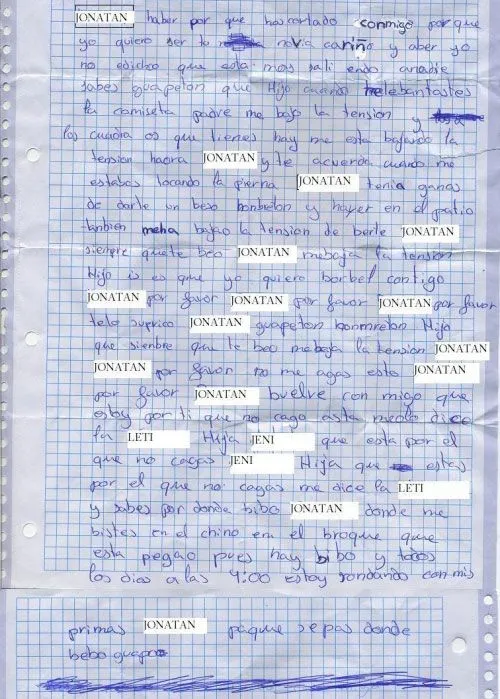 JONATAN haber por que has cortado conmigo porque
yo quiero ser tu novia cariño y aber yo
no edicho que esta mos sali endo anadie
sabes guapeton que Hijo cuando telebantastes
la camiseta padre me bajo la tension y
los cuadra os que tienes hay me esta bajando la
tension haora JONATAN y te acuerda cuando me
estabas tocando la pierna JONATAN tenia ganas
de darte un beso bonbelon y hayer en el patio
tanbien meha bajao la tension de berte JONATAN
siempre quete beo JONATAN mebaja la tension
Hijo is es que yo quiero borbel contigo
JONATAN por favor JONATAN por favor JONATAN por favor
telo suprico JONATAN guapeton bonmrelon Hijo
que sienbre que te beo mebaja la tension JONATAN
JONATAN por favor no me agas esto JONATAN
por favor JONATAN buelve con migo que
estoy por ti que no cago asta melo dice
la LETI Hija JENI que esta por el
que no cagas JENI Hija que estas
por el que no cagas me dice la LETI
y sabes por donde bibo JONATAN donde me
bistes en el chino en el broque que
esta pegao pues hay bibo y todos
los dias a las 4:00 estoy rondando con mis
primas JONATAN paque sepas donde
bebo guapo